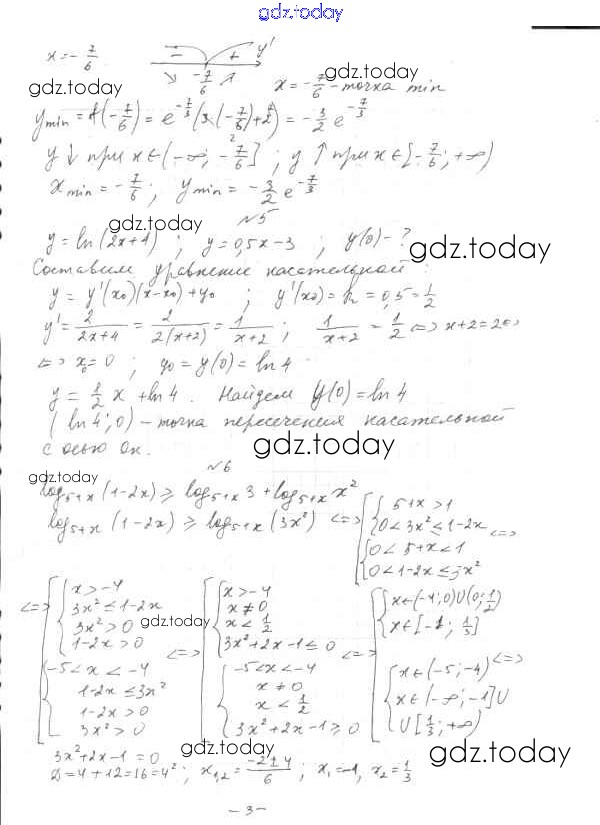 gdz.today
x = -7/6   −   +   y'
↘ -7/6 ↗   x = -7/6 - точка min
gdz.today
gdz.today
y min = f(-7/6) = e^(-7/3) (3·(-7/6)+2) = -3/2 e^(-7/3)
y ↓ при x ∈ (-∞; -7/6] ; y ↑ при x ∈ [-7/6; +∞)
x min = -7/6 ; y min = -3/2 e^(-7/3)
gdz.today
№5
y = ln(2x+4) ; y = 0,5x-3 ; y(0) - ?
gdz.today
Составим уравнение касательной :
y = y'(x₀)(x-x₀)+y₀ ; y'(x₀) = k = 0,5 = 1/2
y' = 2/(2x+4) = 2/(2(x+2)) = 1/(x+2) ; 1/(x+2) = 1/2 <=> x+2=2 <=>
<=> x₀=0 ; y₀ = y(0) = ln 4
y = 1/2 x + ln 4 . Найдем y(0) = ln 4
(ln 4; 0) - точка пересечения касательной
с осью Ox.
gdz.today
№6
gdz.today
log₅₊ₓ (1-2x) ⩾ log₅₊ₓ 3 + log₅₊ₓ x²
log₅₊ₓ (1-2x) ⩾ log₅₊ₓ (3x²) <=> [ { 5+x>1
0<3x²≤1-2x <=>
{ 0<5+x<1
0<1-2x≤3x²
<=> [ { x>-4
3x²≤1-2x
3x²>0
1-2x>0
{ -5<x<-4
1-2x≤3x²
1-2x>0
3x²>0
gdz.today
<=> [ { x>-4
x≠0
x<1/2
3x²+2x-1≤0
{ -5<x<-4
x≠0
x<1/2
3x²+2x-1⩾0
<=> [ { x∈(-4;0)U(0;1/2)
x∈[-1; 1/3]
{ x∈(-5;-4) <=>
x∈(-∞;-1]U
U[1/3;+∞)
3x²+2x-1=0
D=4+12=16=4² ; x₁,₂ = (-2±4)/6 ; x₁=-1, x₂=1/3
gdz.today
gdz.today
- 3 -